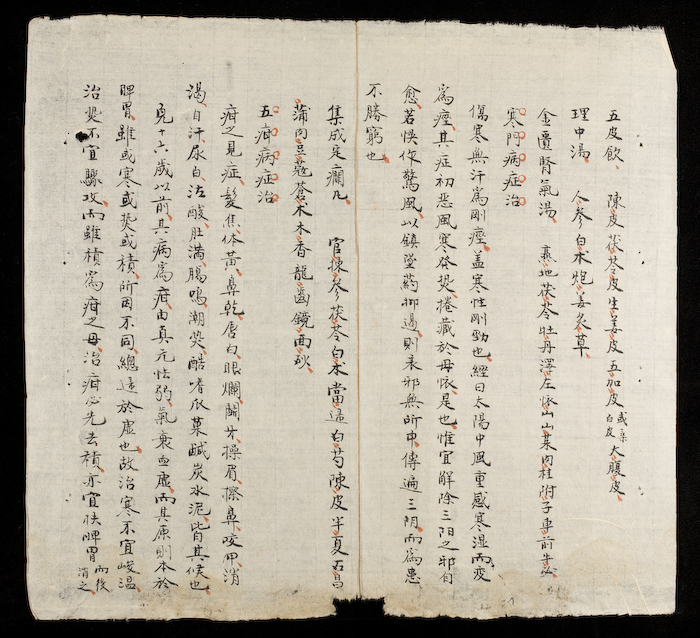 五皮飲 陳皮茯苓皮生姜皮五加皮或桑白皮大腹皮
理中湯 人參白朮炮姜炙草
金匱腎氣湯 熟地茯苓牡丹澤左怀山山茱肉桂附子車前牛必
寒門病症治
傷寒無汗為剛痙蓋寒性剛勁也經曰太陽中風重感寒湿而变
為痙其症初恶風寒發熱捲藏於母怀是也惟宜解除三陽之邪自
愈若悞作驚風以鎮墜葯抑遏則表邪無所中傳遍三阴而為患
不勝窮也
集成定癇丸 官揀參茯苓白朮當归白芍陳皮半夏石昌
蒲肉豆蔻蒼朮木香龍齒鏡面砂
五疳病症治
疳之見症髮焦体黃鼻乾唇白眼爛開牙操眉擦鼻咬甲消
渴自汗尿白泣酸肚满腸鳴潮熱酷嗜瓜菓鹹炭水泥皆其候也
児十六歲以前其病為疳由真元怯弱氣衰血虛而其原則本於
脾胃雖或寒或熱或積所因不同總归於虛也故治寒不宜峻溫
治熱不宜驟攻而雖積為疳之母治疳必先去積亦宜扶脾胃而後消之